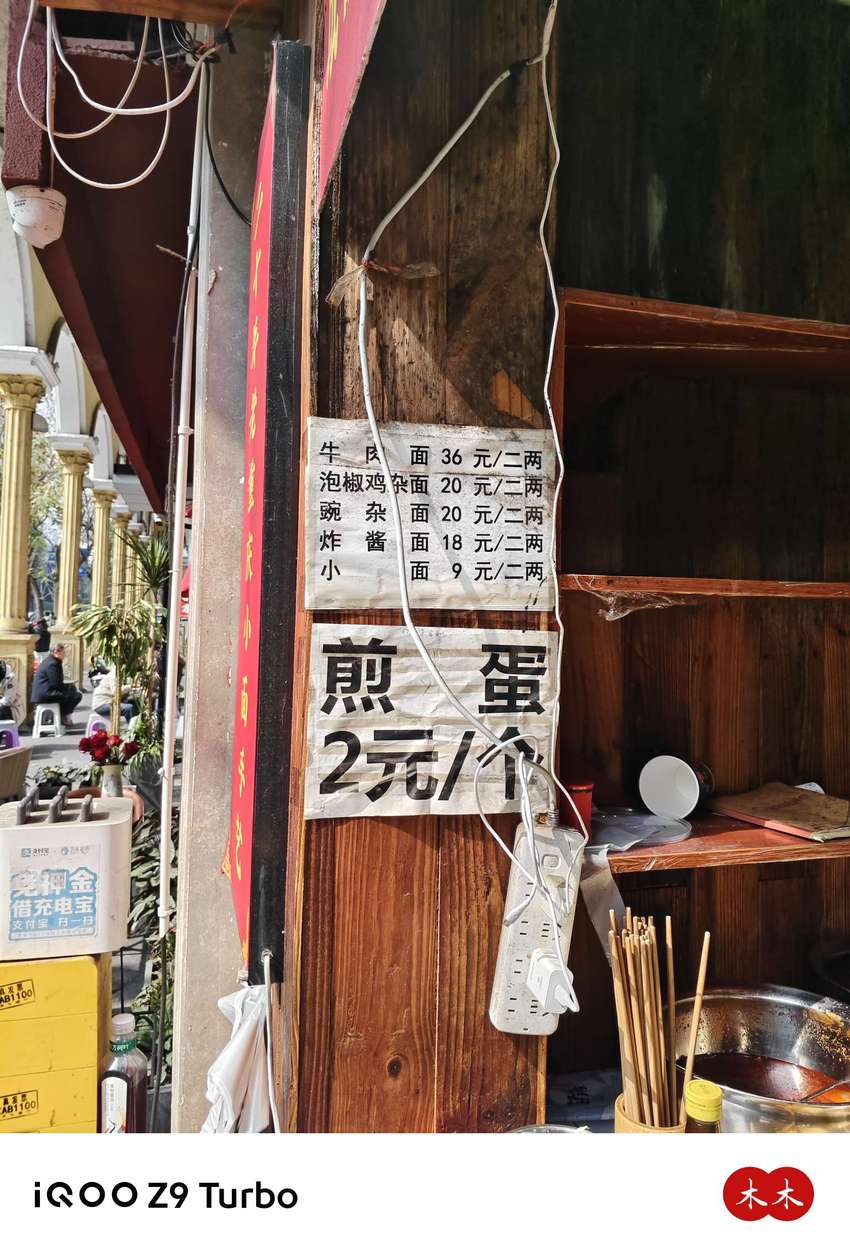 牛肉面 36 元/二两
泡椒鸡杂面 20 元/二两
豌杂面 20 元/二两
炸酱面 18 元/二两
小面 9 元/二两
煎蛋
2元/个
支付宝
免押金
借充电宝
支付宝 扫一扫
AB1100
AB1100
iQOO Z9 Turbo
木木